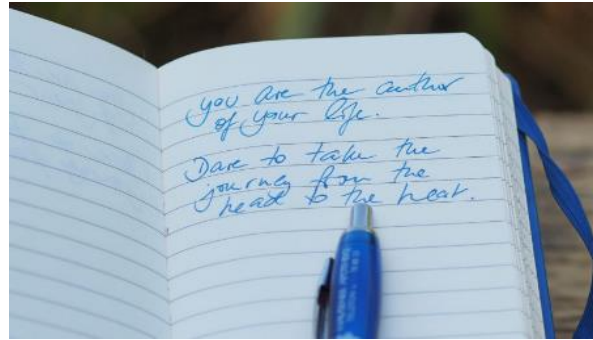 you are the author
of your life.
Dare to take the
journey from the
head to the heart.